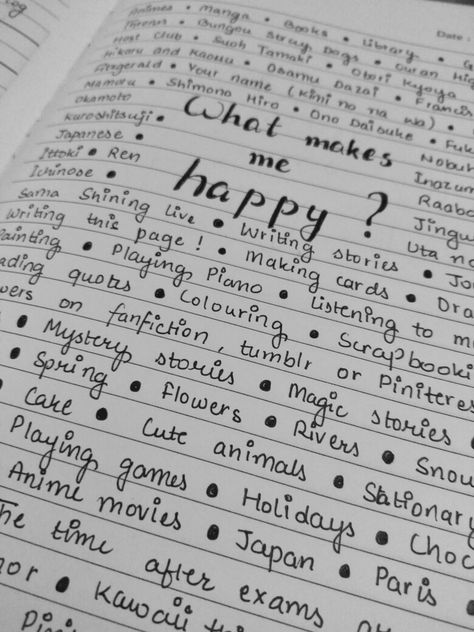 Animes • Manga • Books • Library •
Date :
Bungou Stray Dogs • Ouran Hi
Host Club • Suoh Tamaki • Otori Kyoya
Hikaru and Kaoru • Osamu Dazai • Francis
Fitzgerald • Your name (Kimi no na wa) •
Mamoru • Shimono Hiro • Ono Daisuke • Fuk
Okamoto
What makes
Nobun
Kuroshitsuji •
me
Inazum
Japanese •
happy ?
Raab
Ittoki • Ren
Jingu
Ichinose •
Uta no
Sama Shining live • Writing stories • Jo
Writing this page ! • Making cards • Dra
ainting • Playing Piano • Listening to m
ading quotes • Colouring • Scrapbooki
wers on fanfiction, tumblr or Pinteres
• Mystery stories • Magic stories •
• Spring • Flowers • Rivers • Snow
Cake • Cute animals • Stationary
Playing games • Holidays • Choc
Anime movies • Japan • Paris •
The time after exams
or • Kawaii thi